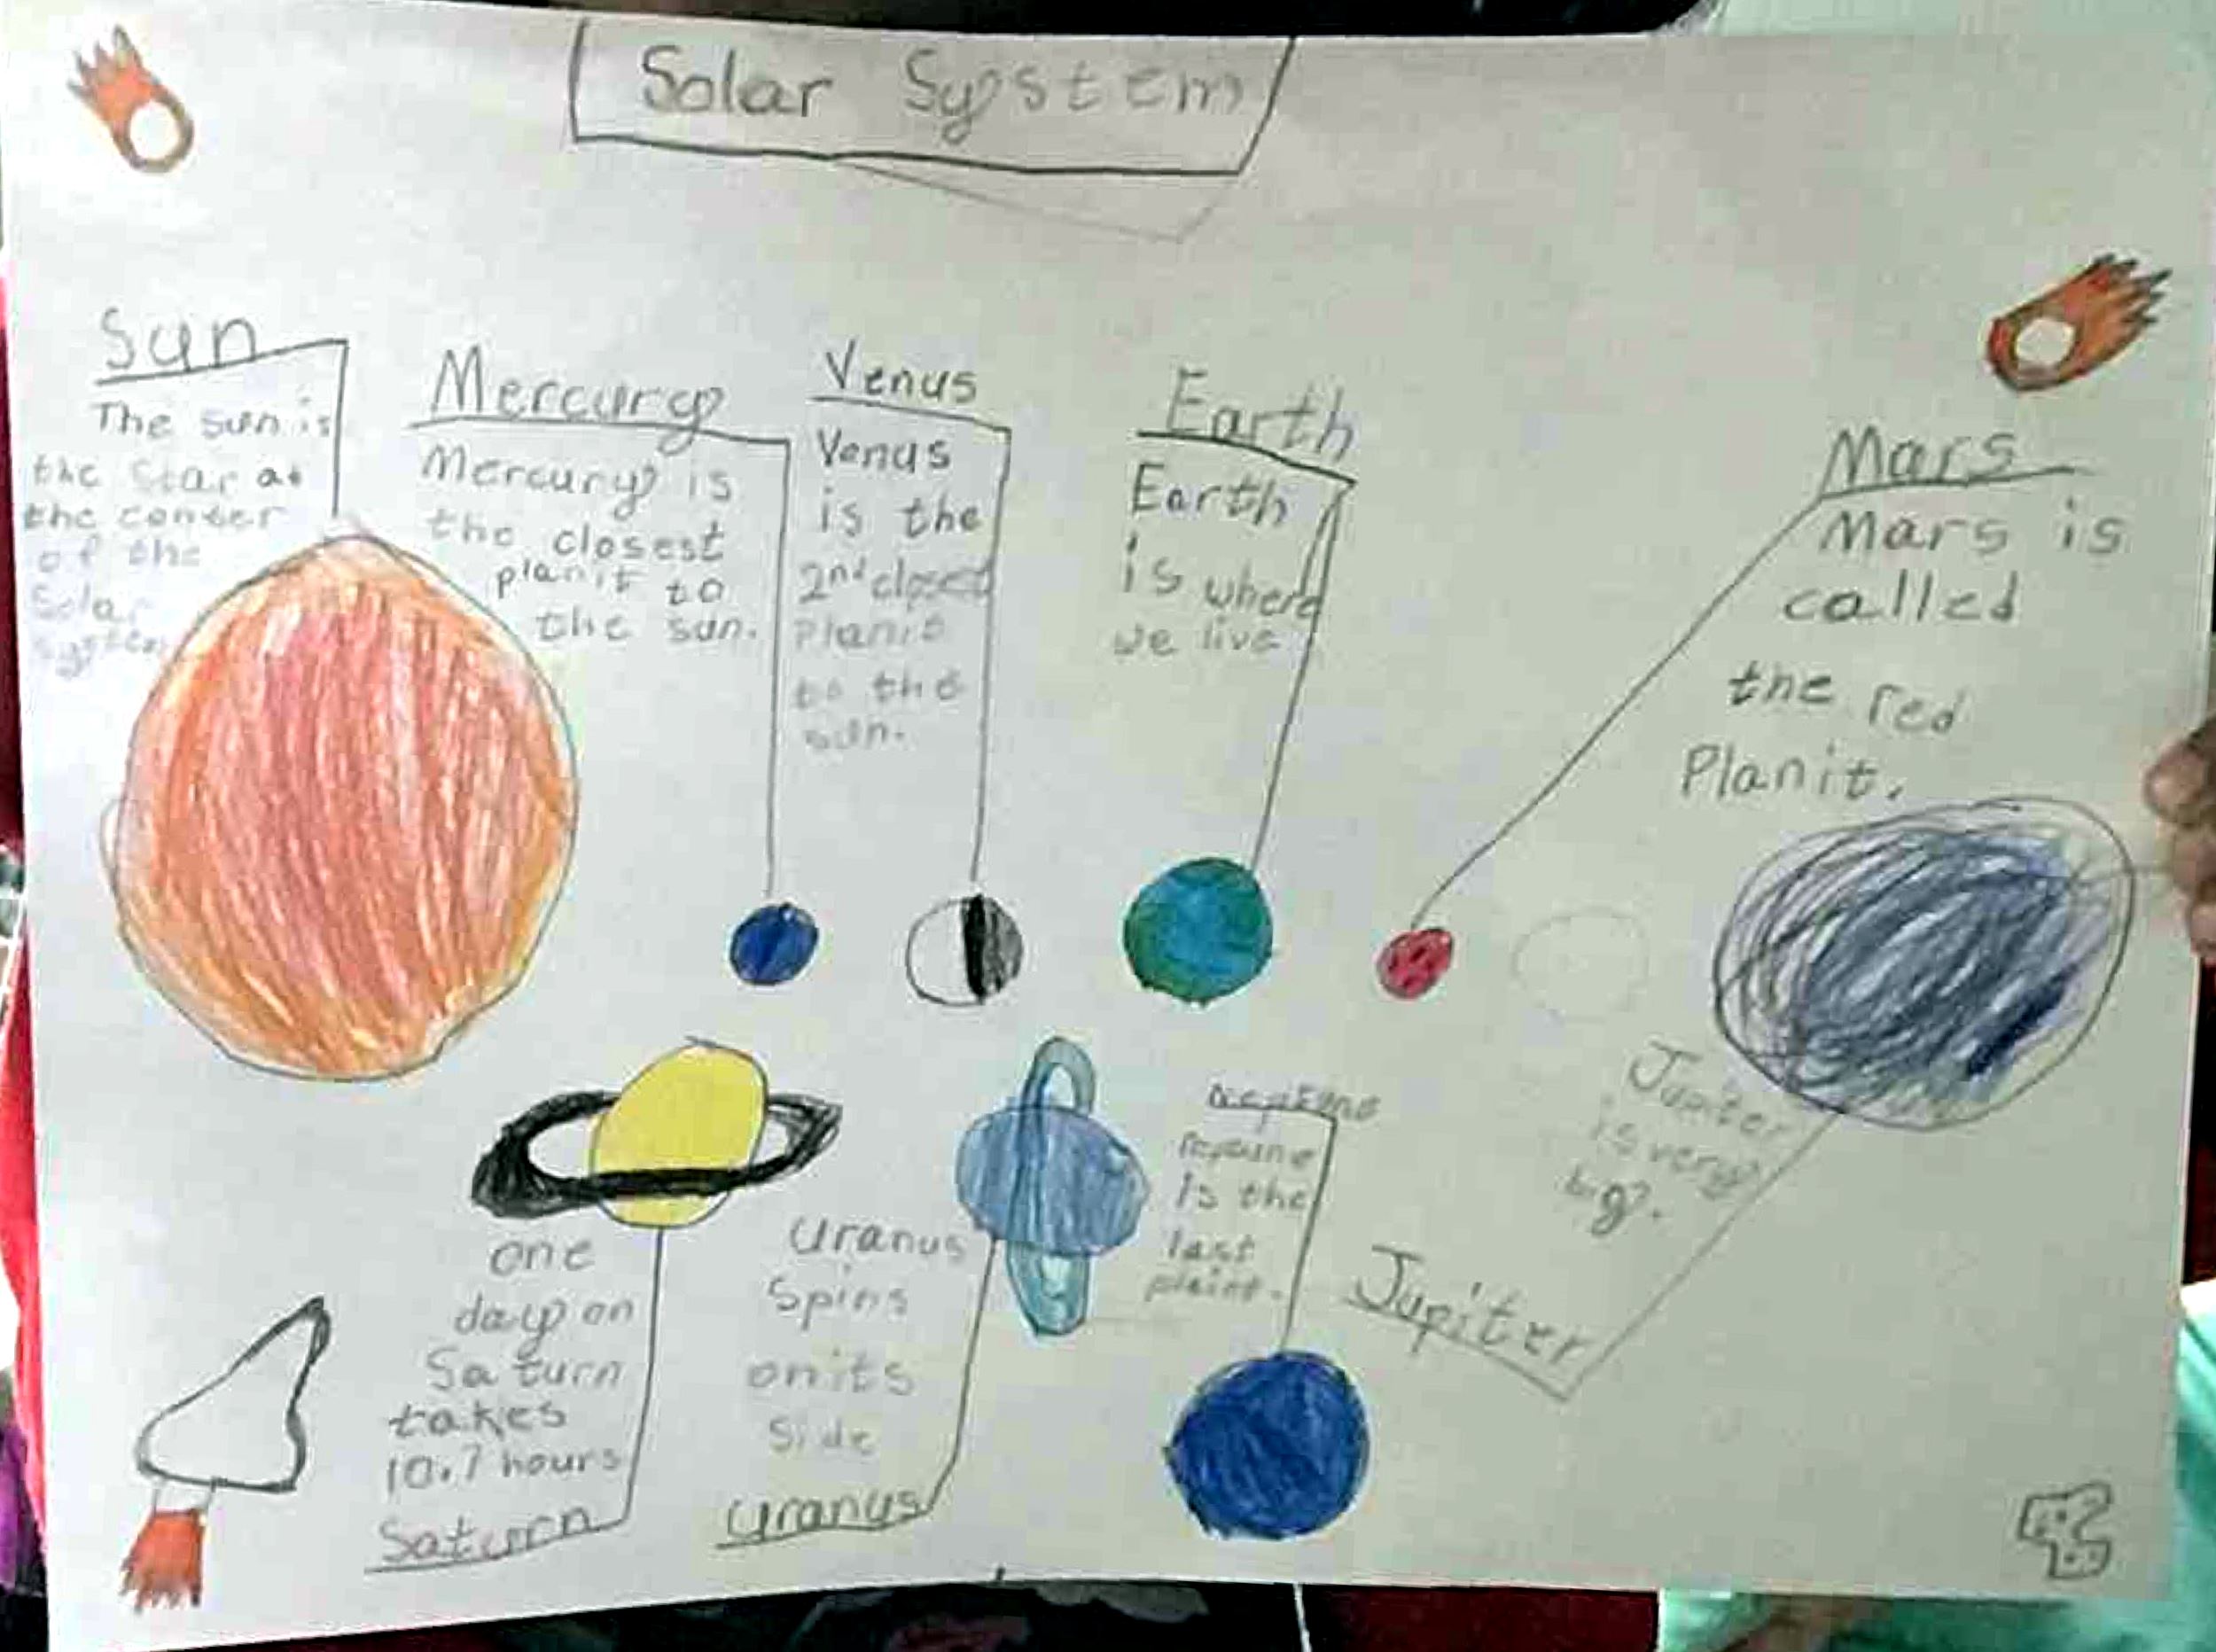 Solar System
Sun
The sun is
the star at
the center
of the
Solar
system
Mercury
Mercury is
the closest
planit to
the sun.
Venus
Venus
is the
2nd closest
planit
to the
sun.
Earth
Earth
is where
we live
Mars
Mars is
called
the red
Planit.
one
day on
Saturn
takes
10.7 hours
Saturn
Uranus
Spins
on its
side
Uranus
neptune
is the
last
Jupiter
is very
big.
Jupiter